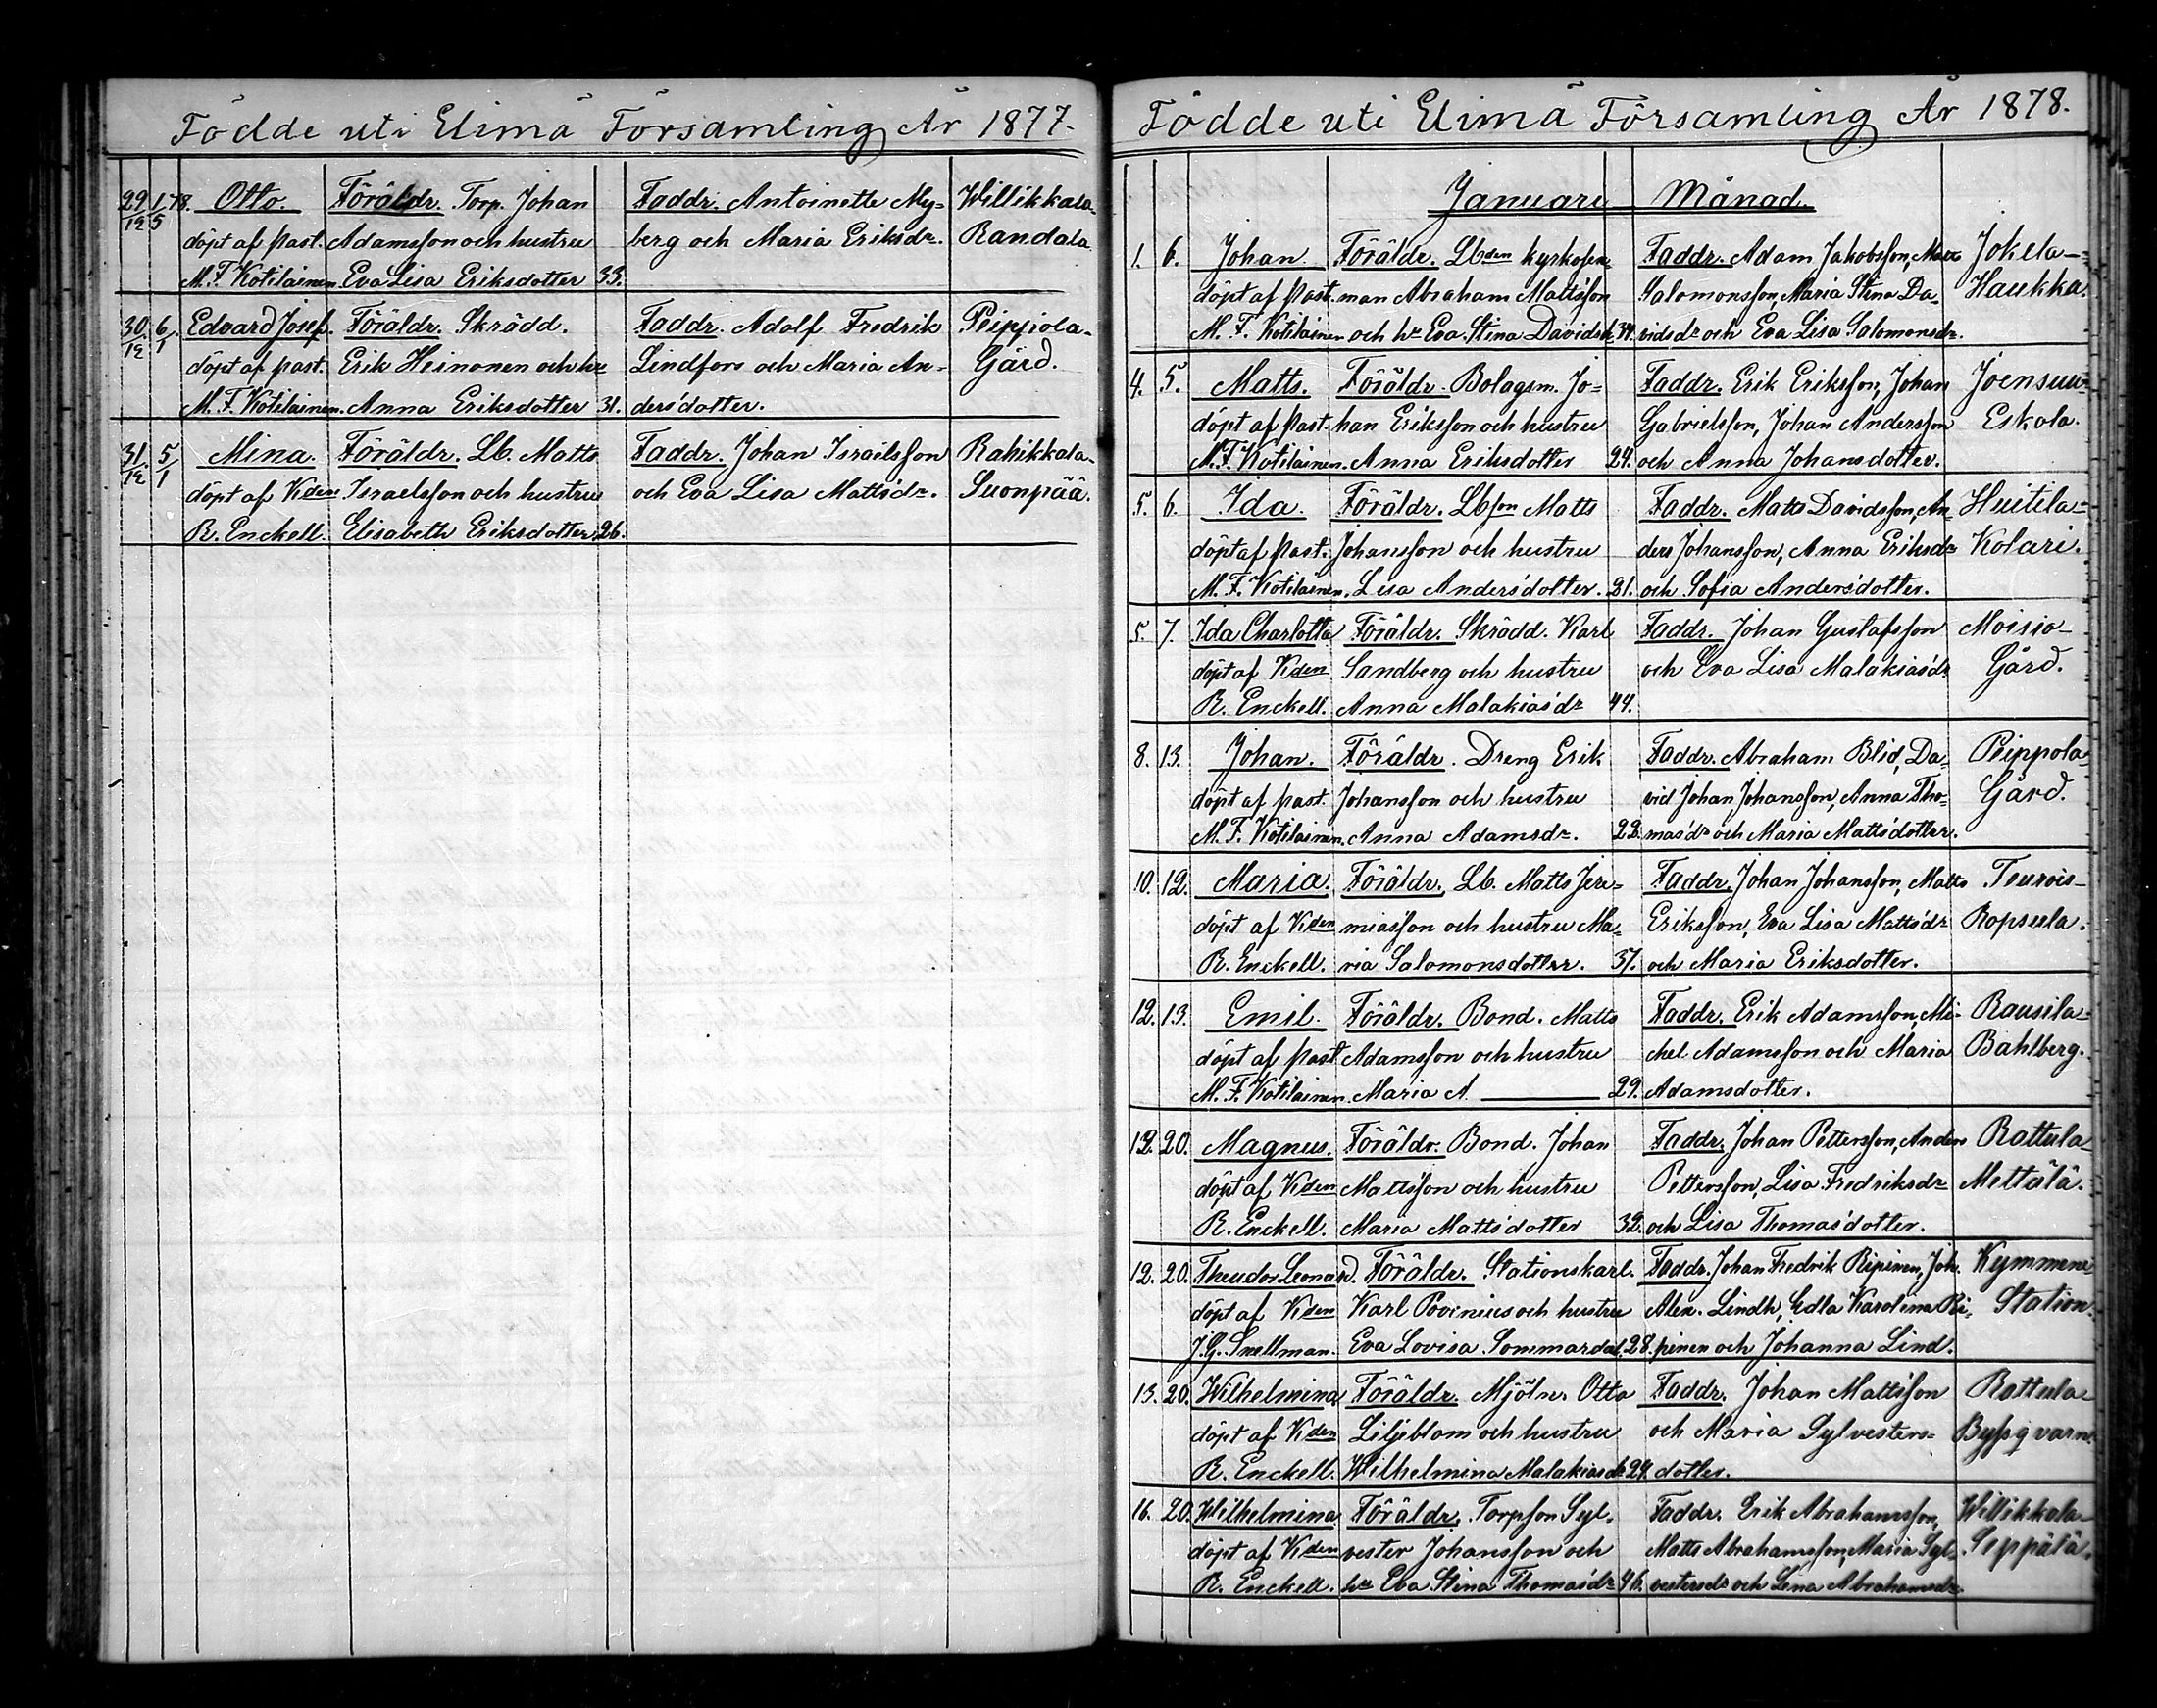 Födde uti Elimä Församling År 1877.
29/12 1/5 78. Otto. Föräldr. Torp. Johan Faddr. Antoinette My- Willikkala-
döpt af Past. Adamsson och hustru berg och Maria Eriksdr. Randala.
M. F. Kotilainen. Eva Lisa Eriksdotter 33.
30/12 6/1 Edvard Josef. Föräldr. Skrädd. Faddr. Adolf Fredrik Peippola-
döpt af past. Erik Heinonen och hu Lindfors och Maria An- Gård.
M. F. Kotilainen. Anna Eriksdotter 31. dersdotter.
31/12 5/1 Mina. Föräldr. Lb. Matts Faddr. Johan Israelsson Rahikkala-
döpt af Kden Israelsson och hustru och Eva Lisa Mattsdr. Suonpää.
R. Enckell. Elisabeth Eriksdotter 26.
Födde uti Elimä Församling År 1878.
Januari Månad.
1. 6. Johan. Föräldr. Lbden kyrkofin- Faddr. Adam Jakobsson, Jokela-
döpt af Past. man Abraham Mattsson Salomonsson, Maria Stina Da- Haukka.
M. F. Kotilainen och hu Eva Stina Davidsdr 34. vidsdr och Eva Lisa Salomonsdr.
4. 5. Matts. Föräldr. Bolagsm. Jo- Faddr. Erik Eriksson, Johan Joensuu-
döpt af Past. han Eriksson och hustru Gabrielsson, Johan Andersson Eskola.
M. F. Kotilainen. Anna Eriksdotter 24. och Anna Johansdotter.
5. 6. Ida. Föräldr. Lbson Matts Faddr. Matts Davidsson, An- Huitila-
döpt af Past. Johansson och hustru ders Johansson, Anna Eriksdr Kolari.
M. F. Kotilainen. Lisa Andersdotter. 21. och Sofia Andersdotter.
5. 7. Ida Charlotta Föräldr. Skrädd. Karl Faddr. Johan Gustafsson Moisio-
döpt af Kden Sandberg och hustru och Eva Lisa Malakiasdr Gård.
R. Enckell. Anna Malakiasdr 44.
8. 13. Johan. Föräldr. Dreng Erik Faddr. Abraham Blid, Da- Peippola-
döpt af past. Johansson och hustru vid Johan Johansson, Anna Tho- Gård.
M. F. Kotilainen. Anna Adamsdr. 22. masdr och Maria Mattsdotter.
10. 12. Maria. Föräldr. Lb. Matts Jere- Faddr. Johan Johansson, Matts Teurois-
döpt af Kden miasson och hustru Ma- Eriksson, Eva Lisa Mattsdr Ropsula.
R. Enckell. ria Salomonsdotter. 37. och Maria Eriksdotter.
12. 13. Emil. Föräldr. Bond. Matts Faddr. Erik Adamsson, Mi- Rausila-
döpt af Past Adamsson och hustru chel Adamsson och Maria Bahlberg.
M. F. Kotilainen. Maria A. 29. Adamsdotter.
12. 20. Magnus. Föräldr. Bond. Johan Faddr. Johan Pettersson, Anders Rattula-
döpt af Kden Mattsson och hustru Pettersson, Lisa Fredriksdr Mettälä.
R. Enckell. Maria Mattsdotter 32. och Lisa Thomasdotter.
12. 20. Theudor Leonard. Föräldr. Stationskarl. Faddr. Johan Fredrik Ripinen, Joh. Kymmene
döpt af Kden Karl Povenius och hustru Alex. Lindh, Edla Karolina Ri- Station.
J. G. Snellman. Eva Lovisa Sommardal. 28. pinen och Johanna Lind.
13. 20. Wilhelmina Föräldr. Mjöln. Otto Faddr. Johan Mattsson Rattula-
döpt af Kden Liljeblom och hustru och Maria Sylvesters- Byssqvarn.
R. Enckell. Wilhelmina Malakiasdr 24. dotter.
16. 20. Wilhelmina Föräldr. Torpson Syl- Faddr. Erik Abrahamsson, Willikkala-
döpt af Kden vester Johansson och Matts Abrahamsson, Maria Syl- Seppälä.
R. Enckell. hu Eva Stina Thomasdr 46. vestersdr och Lena Abrahamsdr.